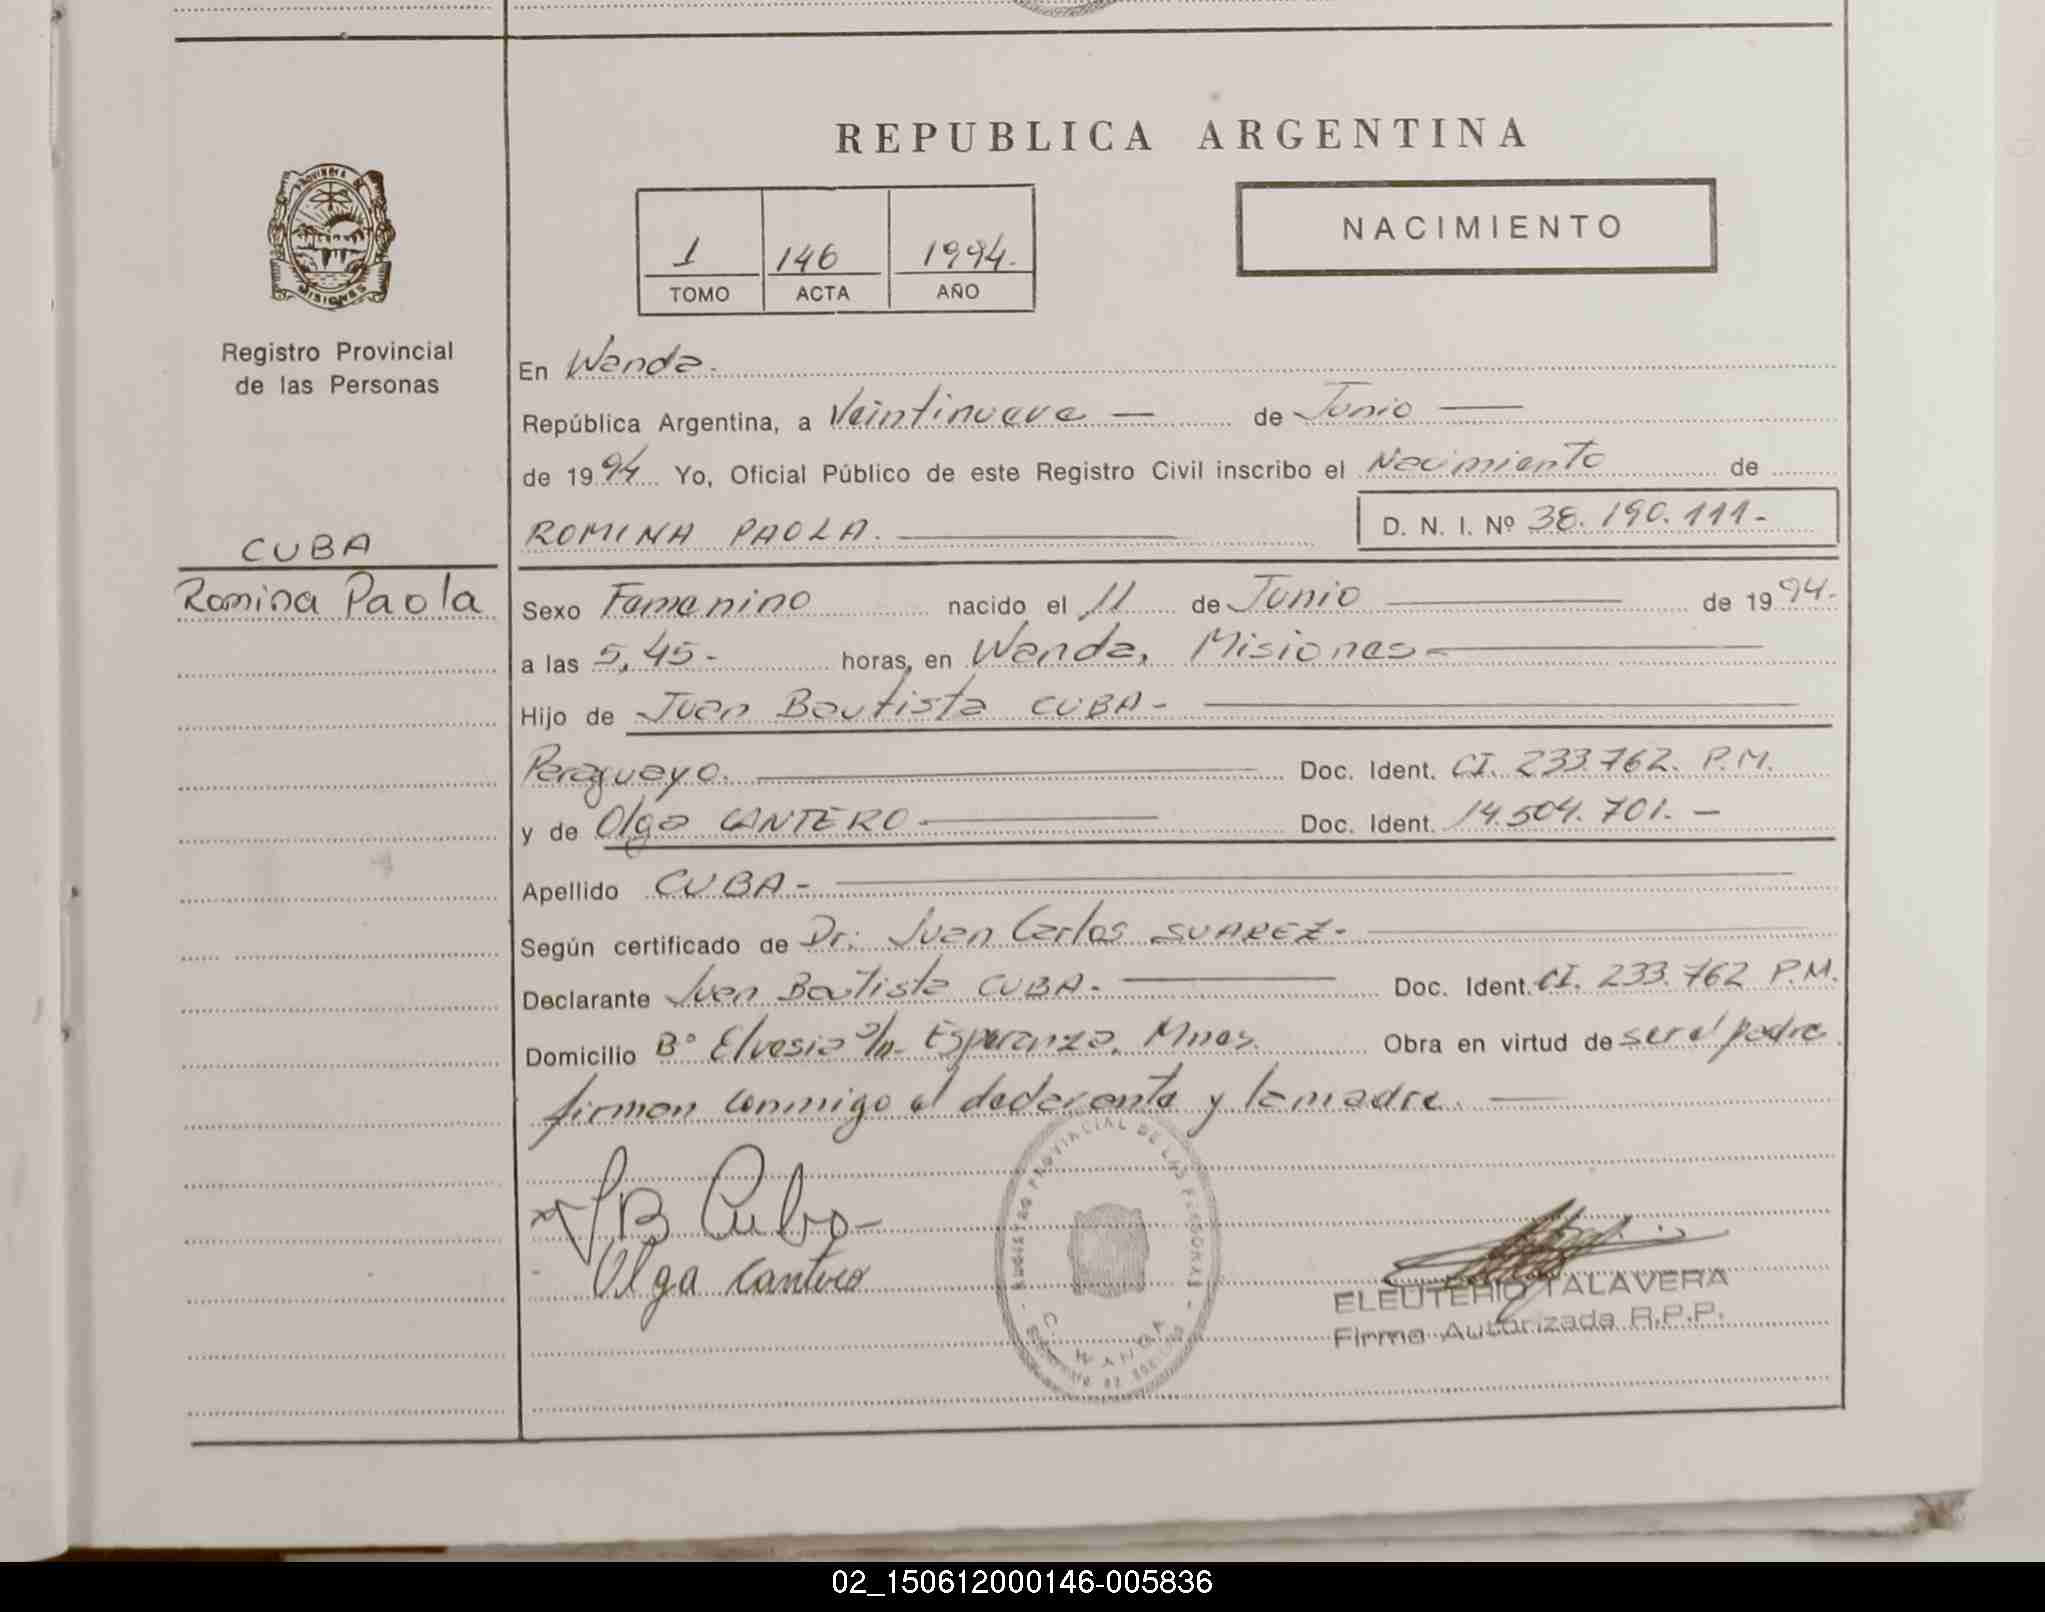 REPUBLICA ARGENTINA
NACIMIENTO
1 146 1994.
TOMO ACTA AÑO
PROVINCIA DE
MISIONES
Registro Provincial
de las Personas
CUBA
Romina Paola
En Wanda.
República Argentina, a Veintinueve — de Junio —
de 1994 Yo, Oficial Público de este Registro Civil inscribo el Nacimiento de
ROMINA PAOLA. D. N. I. Nº 38.190.111-
Sexo Femenino nacido el 11 de Junio de 1994.
a las 5,45- horas, en Wanda, Misiones-
Hijo de Juan Bautista CUBA-
Paraguayo. Doc. Ident. CI. 233.762. P.M.
y de Olga CANTERO Doc. Ident. 14.504.701. —
Apellido CUBA-
Según certificado de Dr. Juan Carlos SUAREZ-
Declarante Juan Bautista CUBA. Doc. Ident. CI. 233.762 P.M.
Domicilio Bº Elvesia s/n. Esperanza, Mnes. Obra en virtud de ser el padre.
firman conmigo el declarante y la madre. —
JB Cuba
Olga Cantero
REGISTRO PROVINCIAL DE LAS PERSONAS
WANDA
ELEUTERIO TALAVERA
Firma Autorizada R.P.P.
02_150612000146-005836